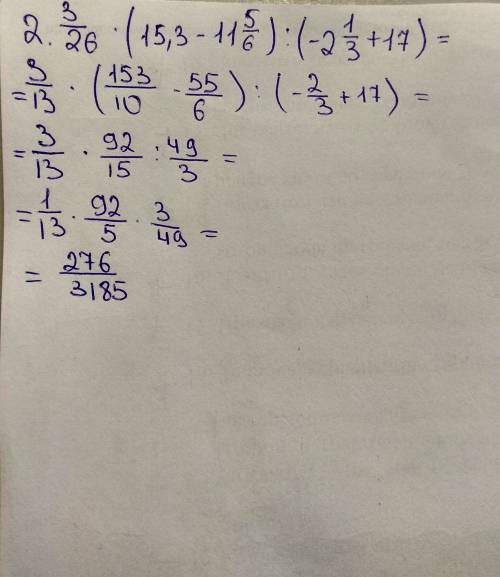 2. 3/26 · (15,3 - 11 5/6) : (-2 1/3 + 17) =
= 3/13 · (153/10 - 55/6) : (- 2/3 + 17) =
= 3/13 · 92/15 : 49/3 =
= 1/13 · 92/5 · 3/49 =
= 276/3185